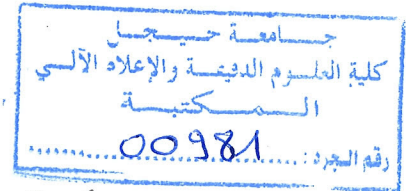 جامعة جيجل
كلية العلوم الدقيقة والإعلام الآلي
المكتبة
رقم الجرد : 00981